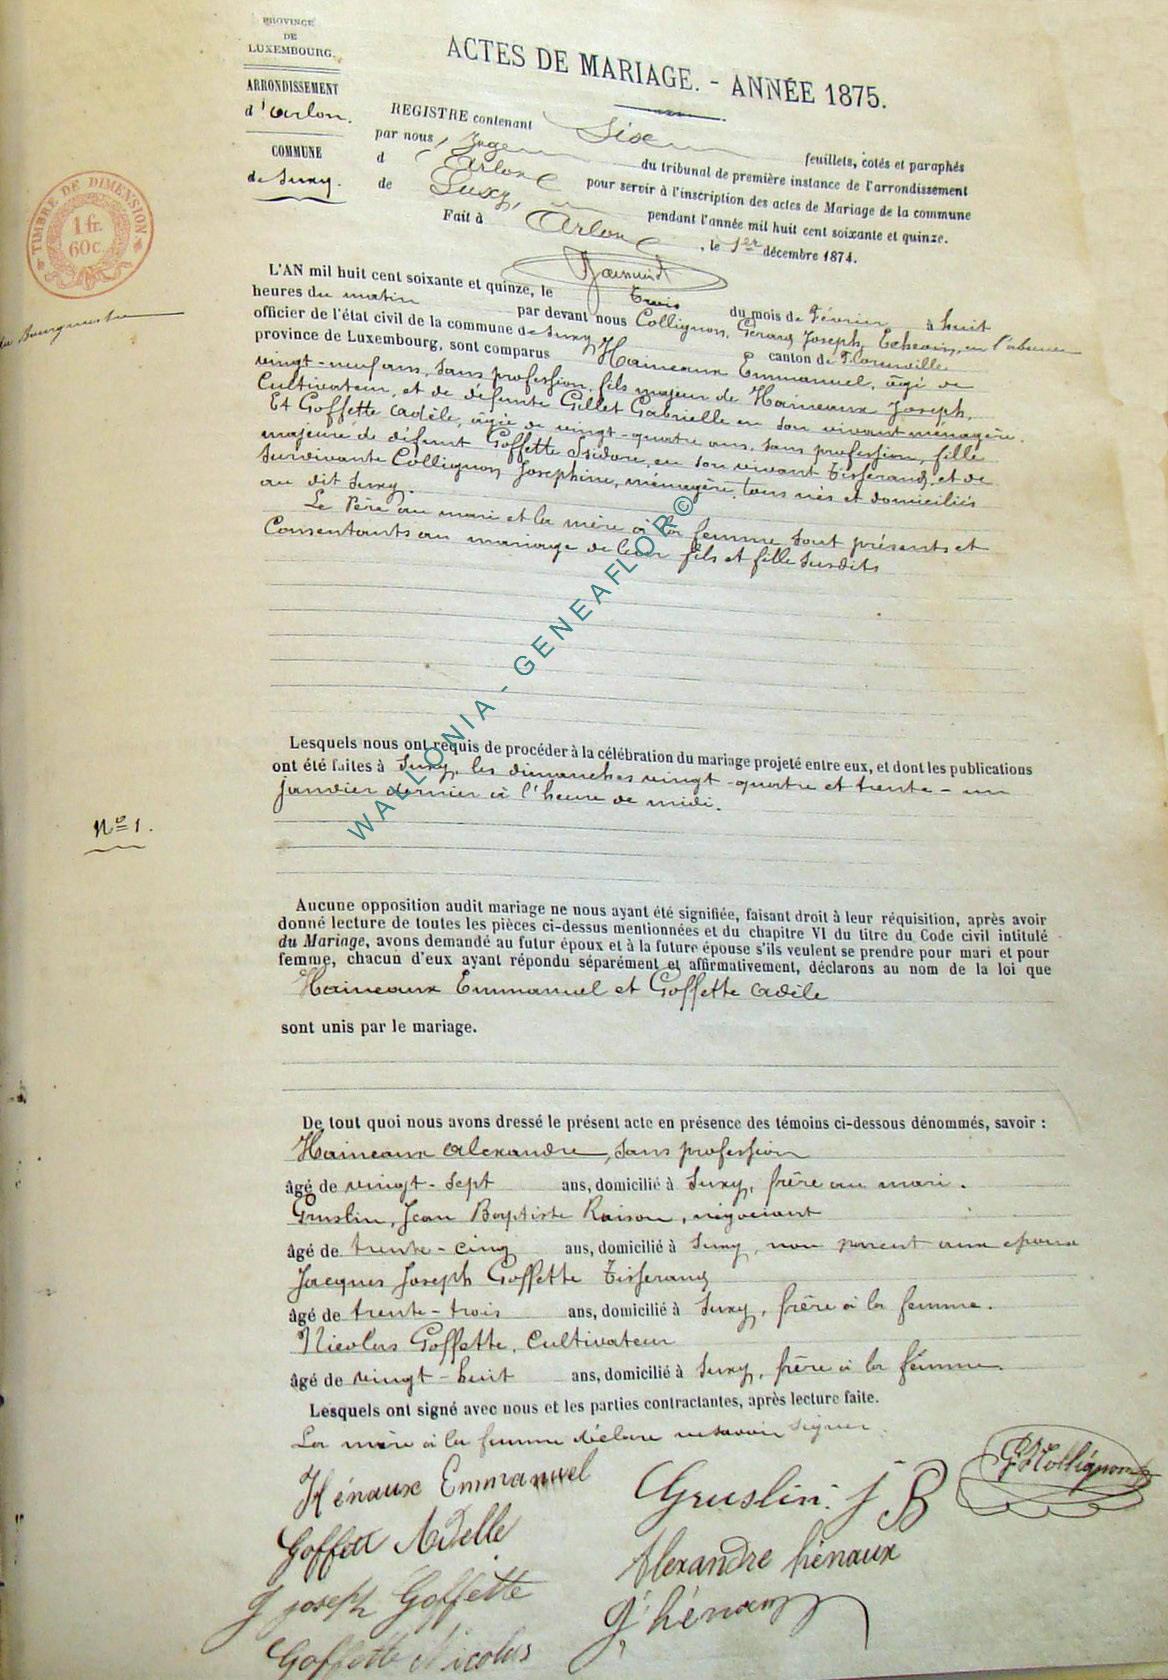 PROVINCE
DE
LUXEMBOURG.
ARRONDISSEMENT
d'Arlon.
COMMUNE
de Suxy.
TIMBRE DE DIMENSION
1 fr.
60 c.
ACTES DE MARIAGE. - ANNÉE 1875.
REGISTRE contenant Six feuillets, cotés et paraphés
par nous, Juge du tribunal de première instance de l'arrondissement
d'Arlon pour servir à l'inscription des actes de Mariage de la commune
de Suxy, pendant l'année mil huit cent soixante et quinze.
Fait à Arlon, le 1er décembre 1874.
L'AN mil huit cent soixante et quinze, le trois du mois de Février à huit
heures du matin par devant nous Collignon, Gérard Joseph, Echevin, en l'absence
du Bourgmestre
officier de l'état civil de la commune de Suxy canton de Florenville
province de Luxembourg, sont comparus Haineaux Emmanuel, âgé de
vingt-neuf ans, sans profession, fils majeur de Haineaux Joseph,
Cultivateur, et de défunte Gillet Gabrielle en son vivant ménagère.
Et Goffette Adèle, âgée de vingt-quatre ans, sans profession, fille
majeure de défunt Goffette Isidore, en son vivant Tisserand, et de
Survivante Collignon Josephine, ménagère, tous nés et domiciliés
au dit Suxy.
Le Père au mari et la mère à la femme sont présents et
Consentants au mariage de leur fils et fille susdits
Lesquels nous ont requis de procéder à la célébration du mariage projeté entre eux, et dont les publications
ont été faites à Suxy, les dimanches vingt-quatre et trente-un
janvier dernier à l'heure de midi.
N° 1.
Aucune opposition audit mariage ne nous ayant été signifiée, faisant droit à leur réquisition, après avoir
donné lecture de toutes les pièces ci-dessus mentionnées et du chapitre VI du titre du Code civil intitulé
du Mariage, avons demandé au futur époux et à la future épouse s'ils veulent se prendre pour mari et pour
femme, chacun d'eux ayant répondu séparément et affirmativement, déclarons au nom de la loi que
Haineaux Emmanuel et Goffette Adèle
sont unis par le mariage.
De tout quoi nous avons dressé le présent acte en présence des témoins ci-dessous dénommés, savoir :
Haineaux Alexandre, sans profession
âgé de vingt-sept ans, domicilié à Suxy, frère au mari.
Gruslin, Jean Baptiste Raison, négociant
âgé de trente-cinq ans, domicilié à Suxy, non parent aux époux
Jacques Joseph Goffette Tisserand
âgé de trente-trois ans, domicilié à Suxy, frère à la femme.
Nicolas Goffette, Cultivateur
âgé de vingt-huit ans, domicilié à Suxy, frère à la femme.
Lesquels ont signé avec nous et les parties contractantes, après lecture faite.
La mère à la femme déclare ne savoir signer.
Hénaux Emmanuel
Gruslin. J B
G J Collignon
Goffett Adelle
Alexandre hénaux
J joseph Goffette
J hénaux
Goffette Nicolas
WALLONIA - GENEAFLOR©